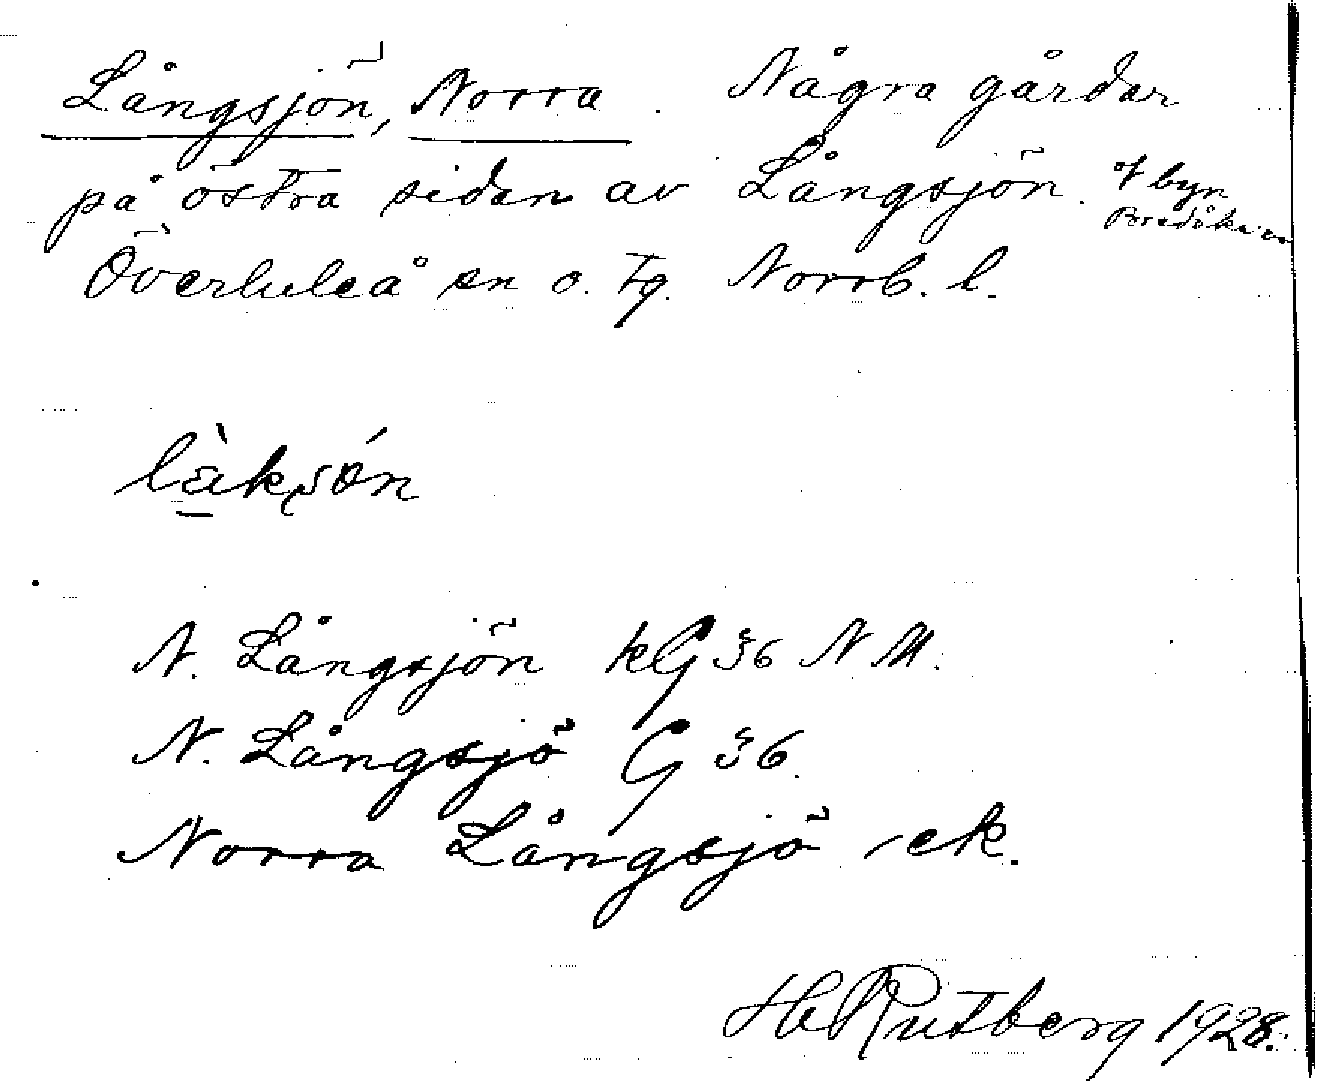 Långsjön, Norra. Några gårdar
på östra sidan av Långsjön. af byn
Överluleå sn o. tg. Norrb. l.
N. Långsjön kG 36 N M.
N. Långsjö G 36.
Norra Långsjö ek.
H Rutberg 1928.